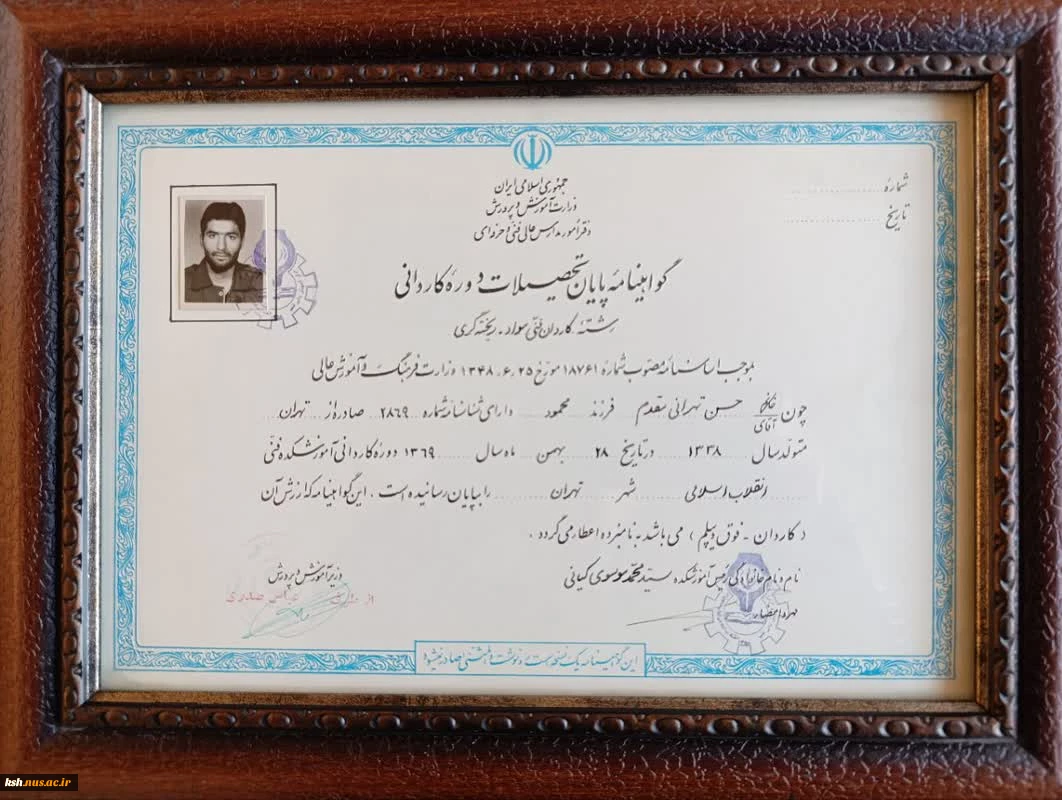 جمهوری اسلامی ایران
وزارت آموزش و پرورش
دفتر امور مدارس عالی فنی و حرفه‌ای
شماره
تاریخ
گواهینامه پایان تحصیلات دوره کاردانی
رشته کاردان فنی مواد - ریخته گری
بموجب اساسنامه مصوب شماره ۱۸۷۶۱ مورّخ ۲۵ ر ۶ ر ۱۳۴۸ وزارت فرهنگ و آموزش عالی
چون خانم آقای حسن تهرانی مقدم فرزند محمود دارای شناسنامه شماره ۲۸۶۹ صادره از تهران
متولد سال ۱۳۳۸ در تاریخ ۲۸ بهمن ماه سال ۱۳۶۹ دوره کاردانی آموزشکده فنی
انقلاب اسلامی شهر تهران را بپایان رسانیده است ، این گواهینامه که ارزش آن
( کاردان - فوق دیپلم ) می باشد به نامبرده اعطاء می گردد .
نام و نام خانوادگی رئیس آموزشکده سید محمد موسوی کیانی
مهر و امضاء
وزیر آموزش و پرورش
از طرف عباس صدری
این گواهینامه یک نسخه است و رونوشت یا المثنی صادر نمیشود
ksh.nus.ac.ir